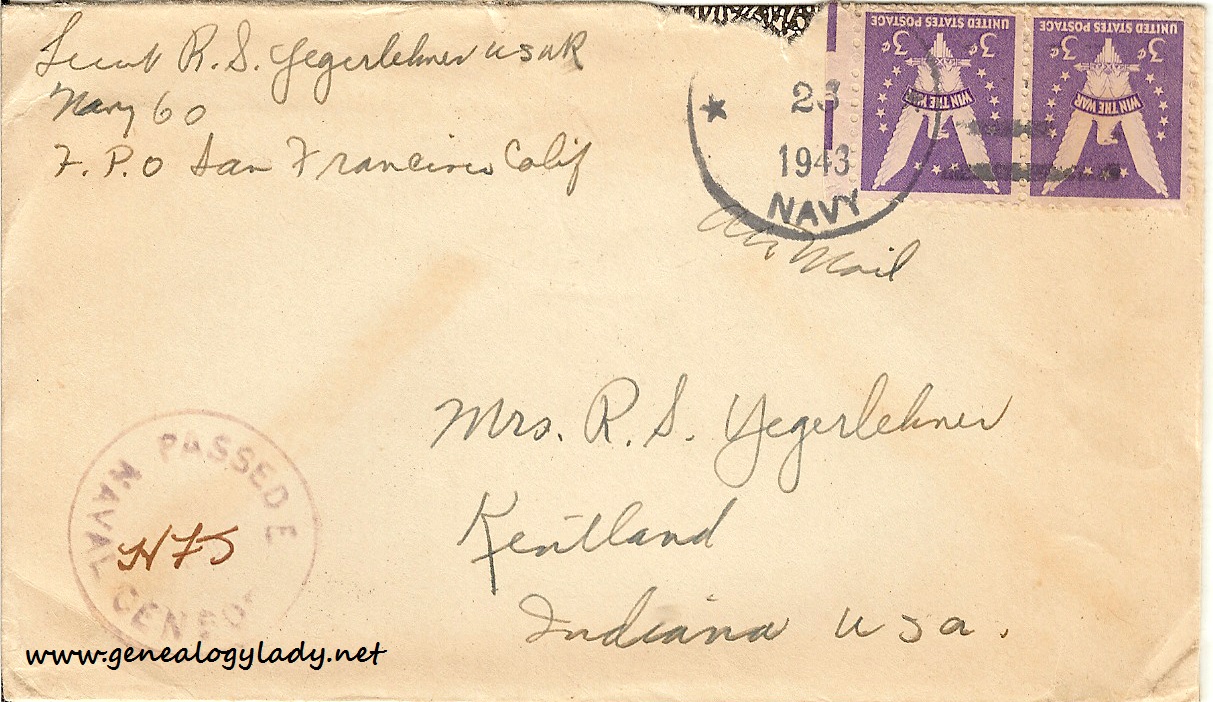 Lieut R. S. Yegerlehner USNR
Navy 60
F. P. O San Francisco Calif
23
1943
NAVY
UNITED STATES POSTAGE
3¢ 3¢
WIN THE WAR
UNITED STATES POSTAGE
3¢ 3¢
WIN THE WAR
Air Mail
Mrs. R. S. Yegerlehner
Kentland
Indiana USA.
PASSED
NAVAL CENSO
www.genealogylady.net